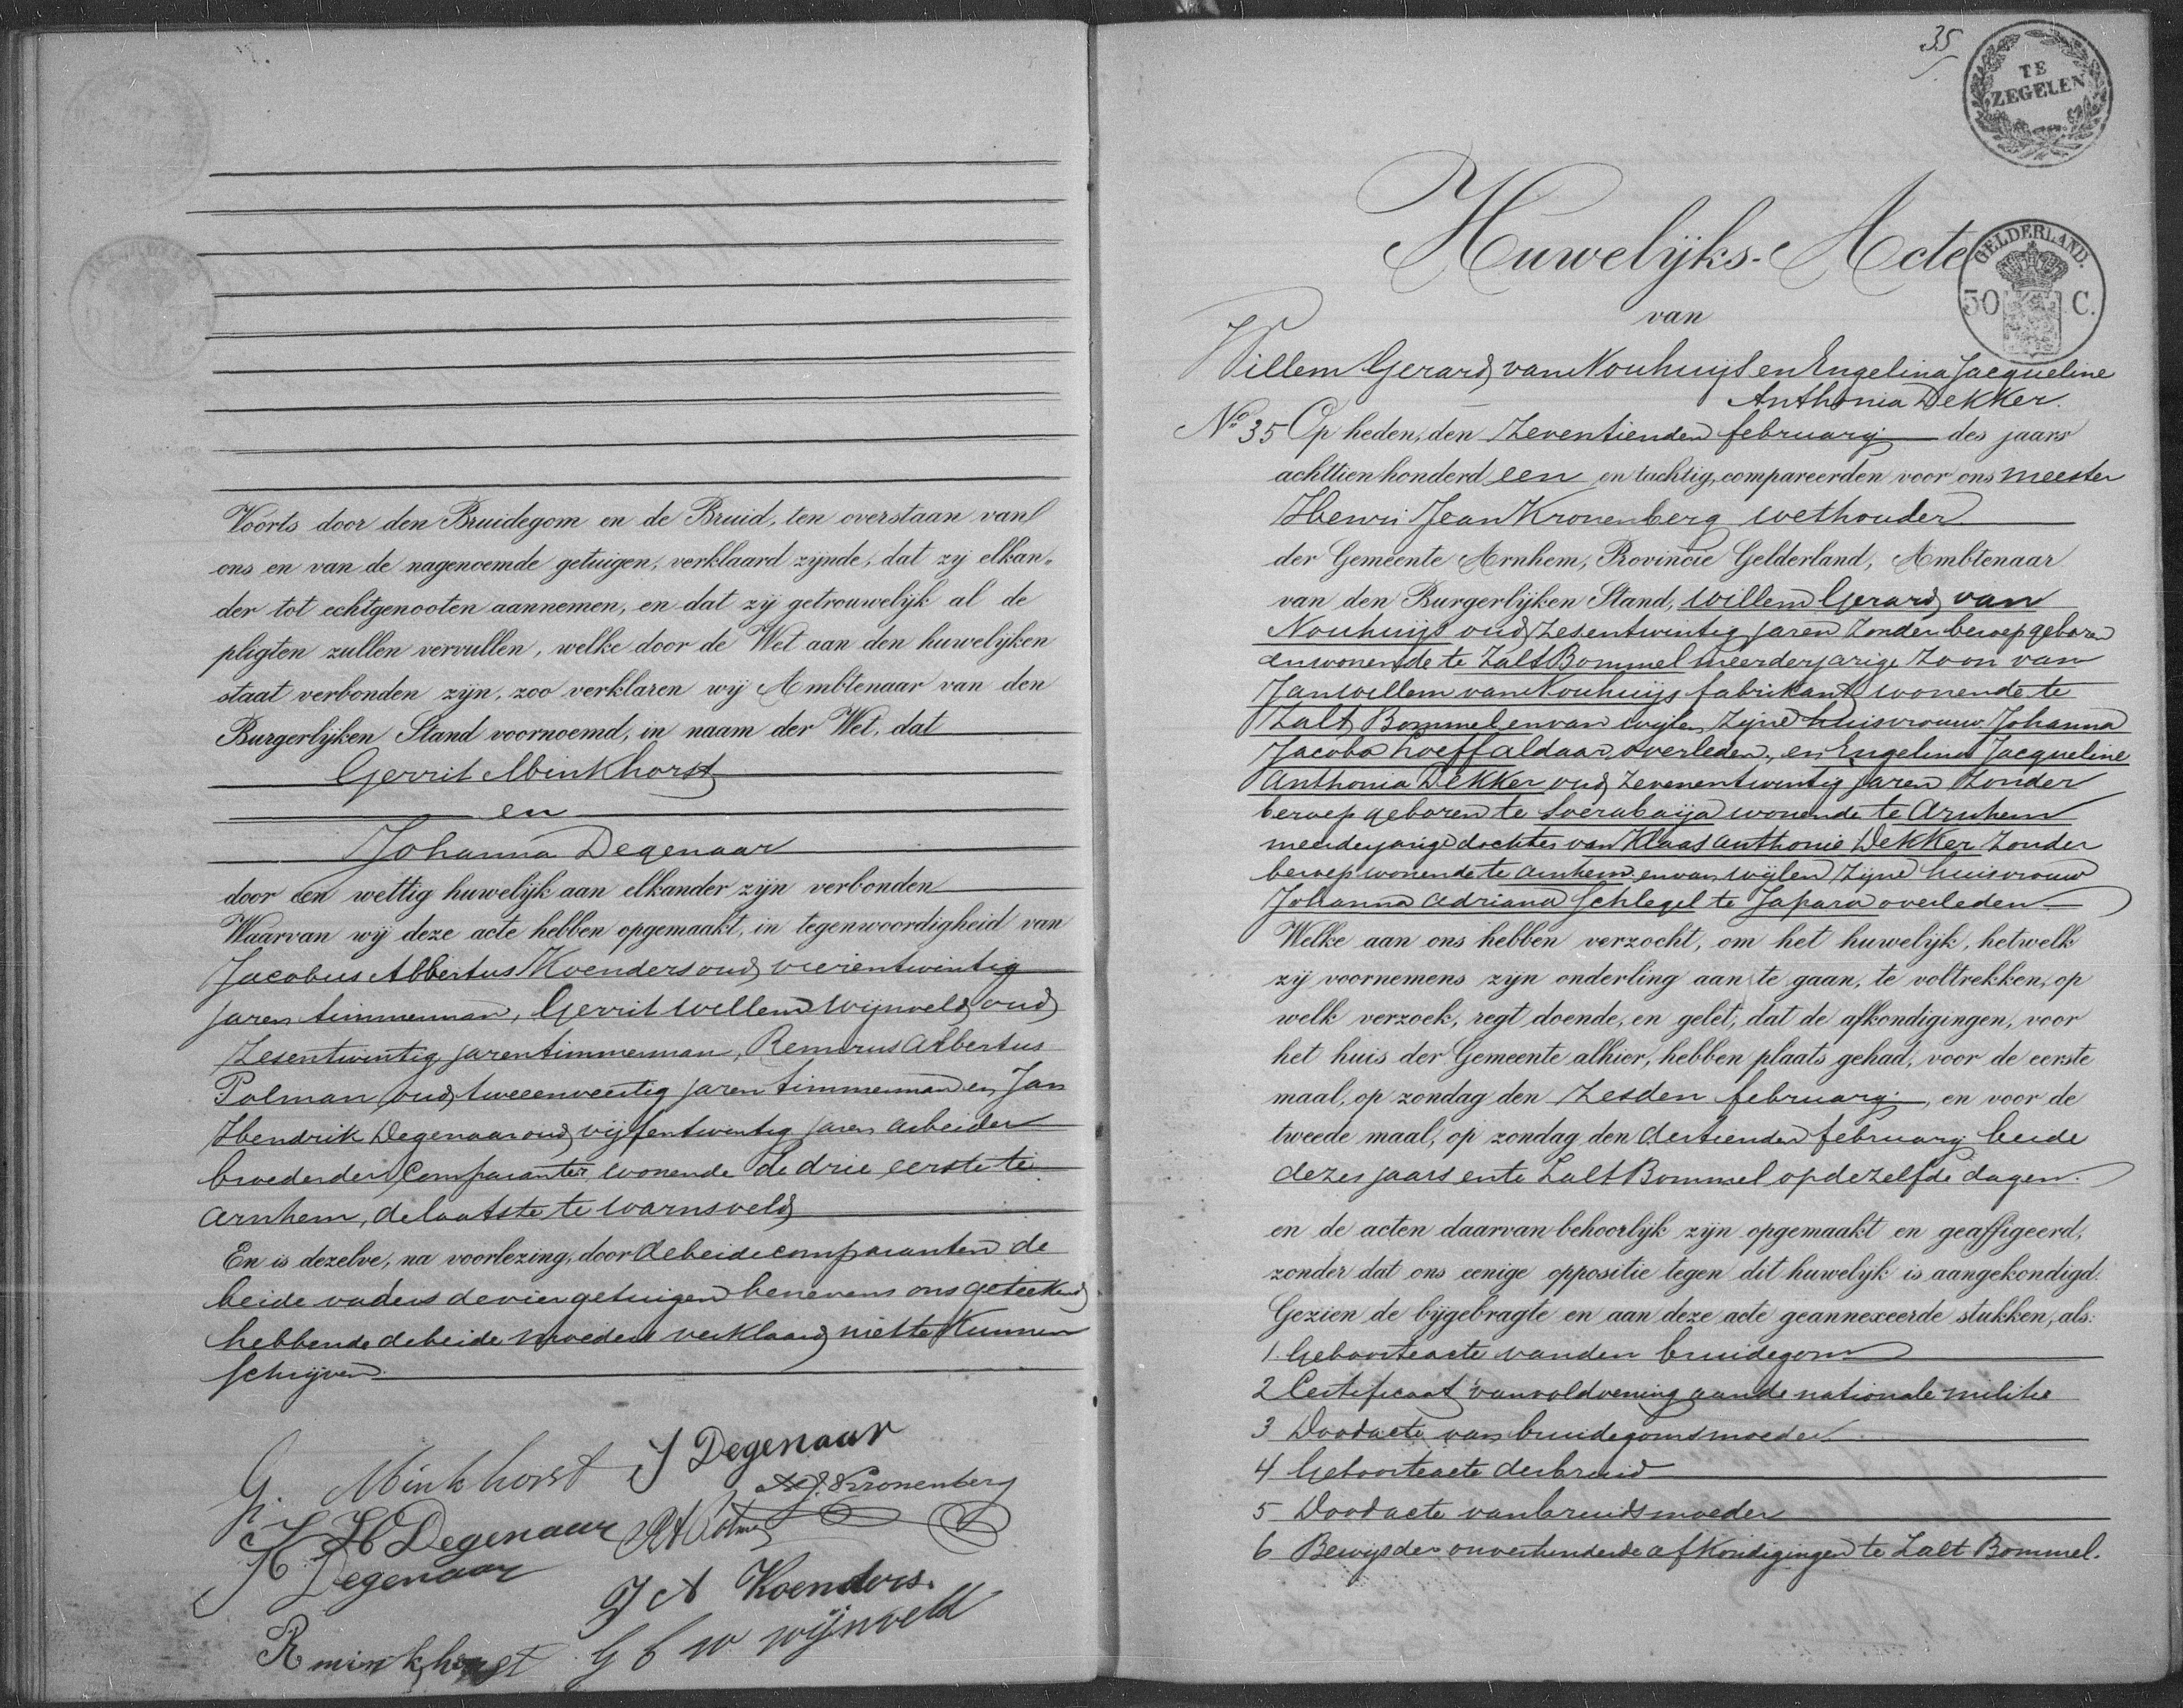 Voorts door den Bruidegom en de Bruid, ten overstaan van
ons en van de nagenoemde getuigen, verklaard zijnde, dat zij elkan-
der tot echtgenooten aannemen, en dat zij getrouwelijk al de
pligten zullen vervullen, welke door de Wet aan den huwelijken
staat verbonden zijn, zoo verklaren wij Ambtenaar van den
Burgerlijken Stand voornoemd, in naam der Wet, dat
Gerrit Minkhorst
en
Johanna Degenaar
door een wettig huwelijk aan elkander zijn verbonden
Waarvan wij deze acte hebben opgemaakt, in tegenwoordigheid van
Jacobus Albertus Koenders oud vierentwintig
jaren timmerman, Gerrit Willem Wijnveld oud
zesentwintig jaren timmerman, Albertus
Polman oud tweeenveertig jaren timmerman en Jan
Hendrik Degenaar oud vijfentwintig jaren arbeider
broeder der Comparante, wonende de drie eerste te
Arnhem, de laatste te Warnsveld
En is dezelve, na voorlezing, door de beide comparanten de
beide vaders de vier getuigen benevens ons geteekend
hebbende de beide moeders verklaard niet te kunnen
schrijven
G. Minkhorst J Degenaar
HJ. Kronenberg
J H Degenaar RA Polman
H Degenaar
J A Koenders.
R minkhorst G W wijnveld
35
TE
ZEGELEN
Huwelijks-Acte
GELDERLAND.
50 C.
van
Willem Gerard van Nouhuijs en Engelina Jacqueline
Anthonia Dekker.
No. 35 Op heden, den zeventienden februarij des jaars
achttien honderd een en tachtig, compareerden voor ons meester
Henri Jean Kronenberg wethouder
der Gemeente Arnhem, Provincie Gelderland, Ambtenaar
van den Burgerlijken Stand, Willem Gerard van
Nouhuijs oud zesentwintig jaren zonder beroep geboren
en wonende te Zalt Bommel meerderjarige zoon van
Jan Willem van Nouhuijs fabrikant wonende te
Zalt Bommel en van wijlen zijne huisvrouw Johanna
Jacoba Hoeff aldaar overleden, en Engelina Jacqueline
Anthonia Dekker oud zevenentwintig jaren zonder
beroep geboren te Soerabaija wonende te Arnhem
meerderjarige dochter van Klaas Anthonie Dekker zonder
beroep wonende te Arnhem en van wijlen zijne huisvrouw
Johanna Adriana Schlegel te Japara overleden
Welke aan ons hebben verzocht, om het huwelijk, hetwelk
zij voornemens zijn onderling aan te gaan, te voltrekken, op
welk verzoek, regt doende, en gelet, dat de afkondigingen, voor
het huis der Gemeente alhier, hebben plaats gehad, voor de eerste
maal, op zondag den zesden februarij, en voor de
tweede maal, op zondag den dertienden februarij beide
dezes jaars en te Zalt Bommel op dezelfde dagen.
en de acten daarvan behoorlijk zijn opgemaakt en geaffigeerd,
zonder dat ons eenige oppositie tegen dit huwelijk is aangekondigd.
Gezien de bijgebragte en aan deze acte geannexeerde stukken, als:
1. Geboorteacte van den bruidegom
2 Certificaat van voldoening aan de nationale militie
3 Doodacte van bruidegomsmoeder
4 Geboorteacte der bruid
5 Doodacte van bruidsmoeder
6 Bewijs der onverhinderde afkondigingen te Zalt Bommel.